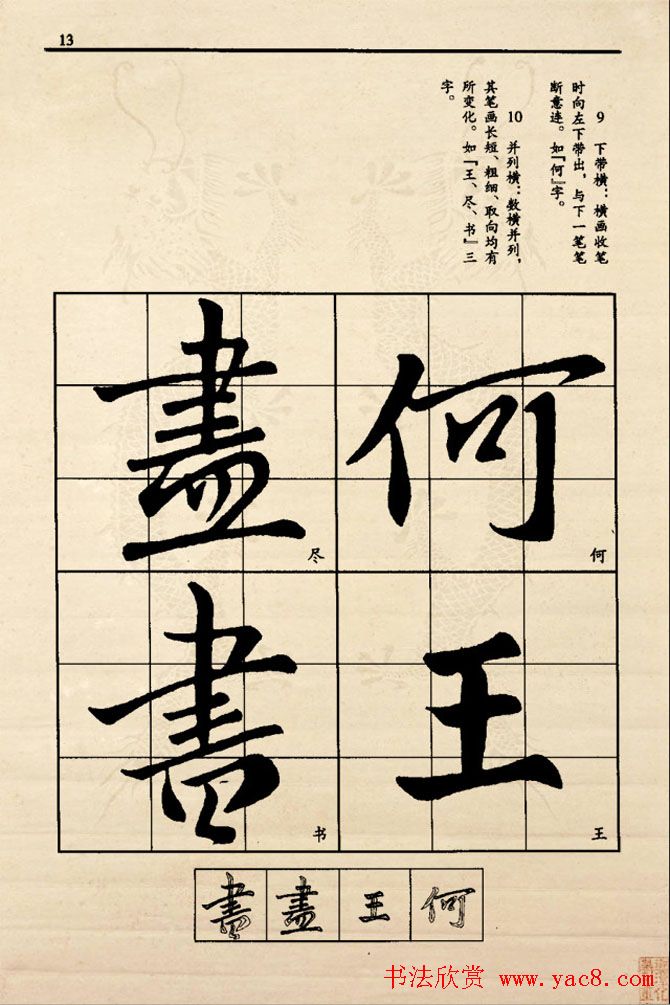 13
9 下带横：横画收笔
时向左下带出，与下一笔笔
断意连。如『何』字。
10 并列横：数横并列，
其笔画长短、粗细、取向均有
所变化。如『王、尽、书』三
字。
何
何
王
王
盡
尽
書
书
何
王
盡
書
书法欣赏 www.yac8.com